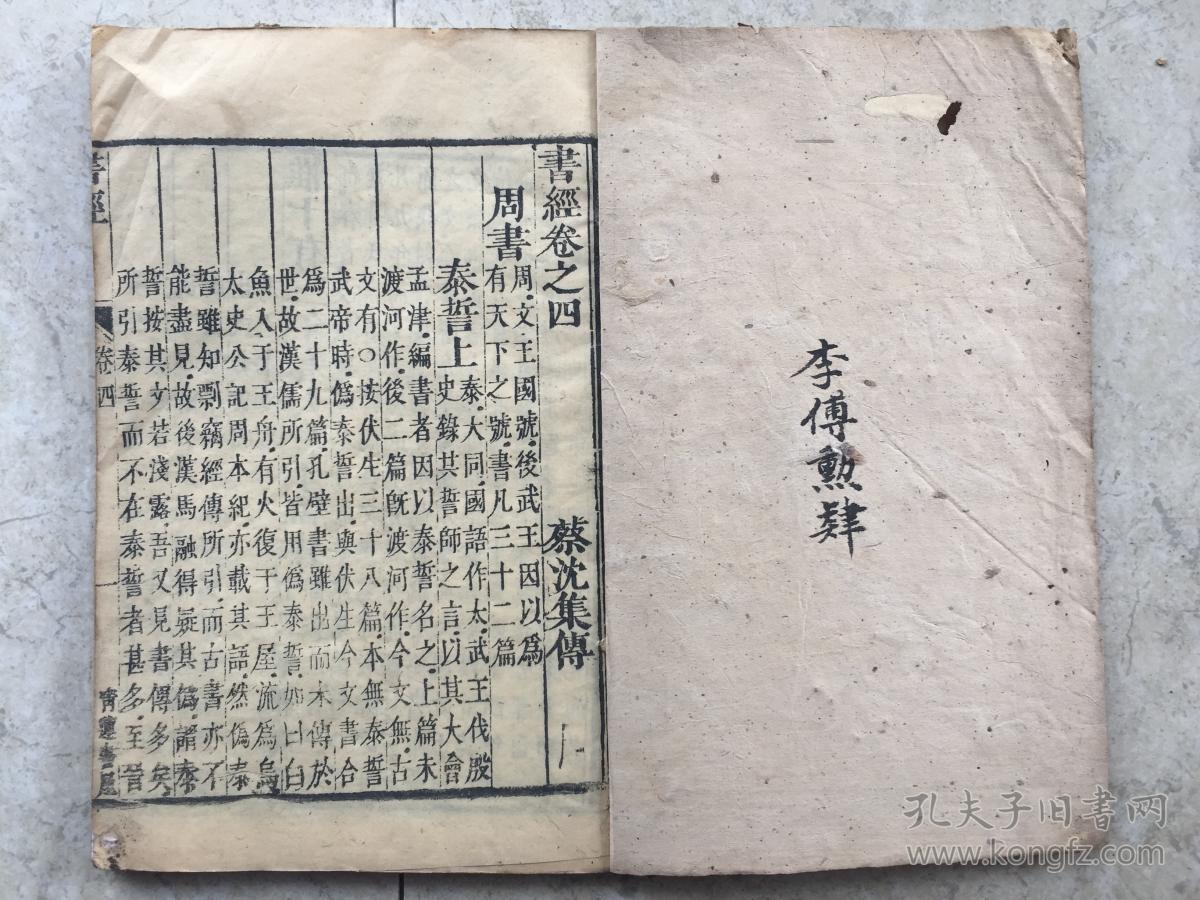 李傅勲肄
書經卷之四 蔡沈集傳
周書 周文王國號後武王因以爲
有天下之號書凡三十二篇
泰誓上 泰大同國語作太武王伐殷
史錄其誓師之言以其大會
孟津編書者因以泰誓名之上篇未
渡河作後二篇旣渡河作今文無古
文有○按伏生二十八篇本無泰誓
武帝時僞泰誓出與伏生今文書合
爲二十九篇孔壁書雖出而未傳於
世故漢儒所引皆用僞泰誓如曰白
魚入于王舟有火復于王屋流爲烏
太史公記周本紀亦載其語然僞泰
誓雖知剽竊經傳所引而古書亦不
能盡見故後漢馬融得疑其僞謂泰
誓按其文若淺露吾又見書傳多矣
所引泰誓而不在泰誓者甚多至晉
書經 卷四 一
孔夫子旧書网
www.kongfz.com